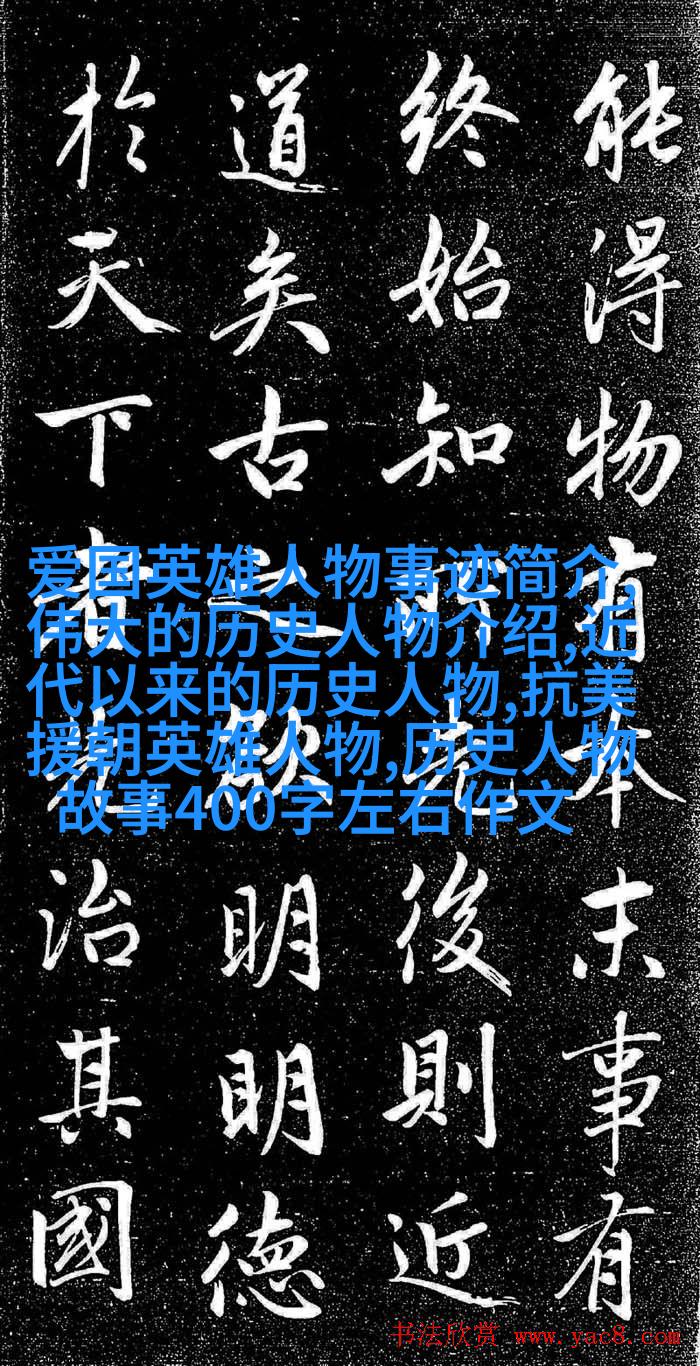 能得物有本末事有
終始知所先後則近
道矣古之欲明明德
於天下者先治其國
爱国英雄人物事迹简介,
伟大的历史人物介绍,近
代以来的历史人物,抗美
援朝英雄人物,历史人物
故事400字左右作文
书法欣赏 www.yac8.com